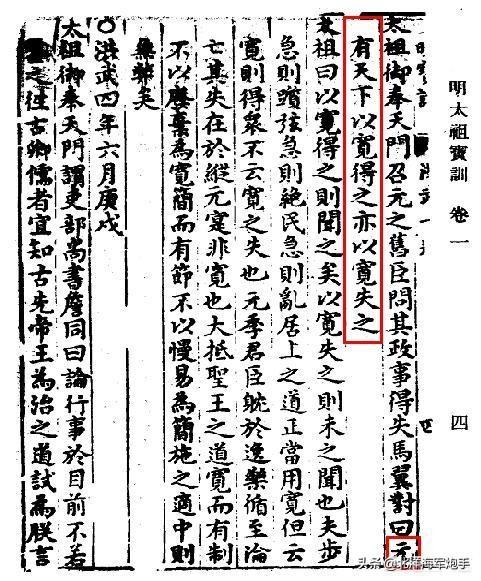 明太祖寶訓 卷一
四
太祖御奉天門召元之舊臣問其政事得失馬翼對曰元
有天下以寬得之亦以寬失之
太祖曰以寬得之則聞之矣以寬失之則未之聞也夫步
急則躓弦急則絕民急則亂居上之道正當用寬但云
寬則得衆不云寬之失也元季君臣耽於逸樂循至淪
亡其失在於縱元寔非寬也大抵聖王之道寬而有制
不以廢棄為寬簡而有節不以慢易為簡施之適中則
無弊矣
○洪武四年六月庚戌
太祖御奉天門謂吏部尚書詹同曰論行事於目前不若
之往古卿儒者宜知古先帝王為治之道試為朕言
头条 @北洋海军炮手